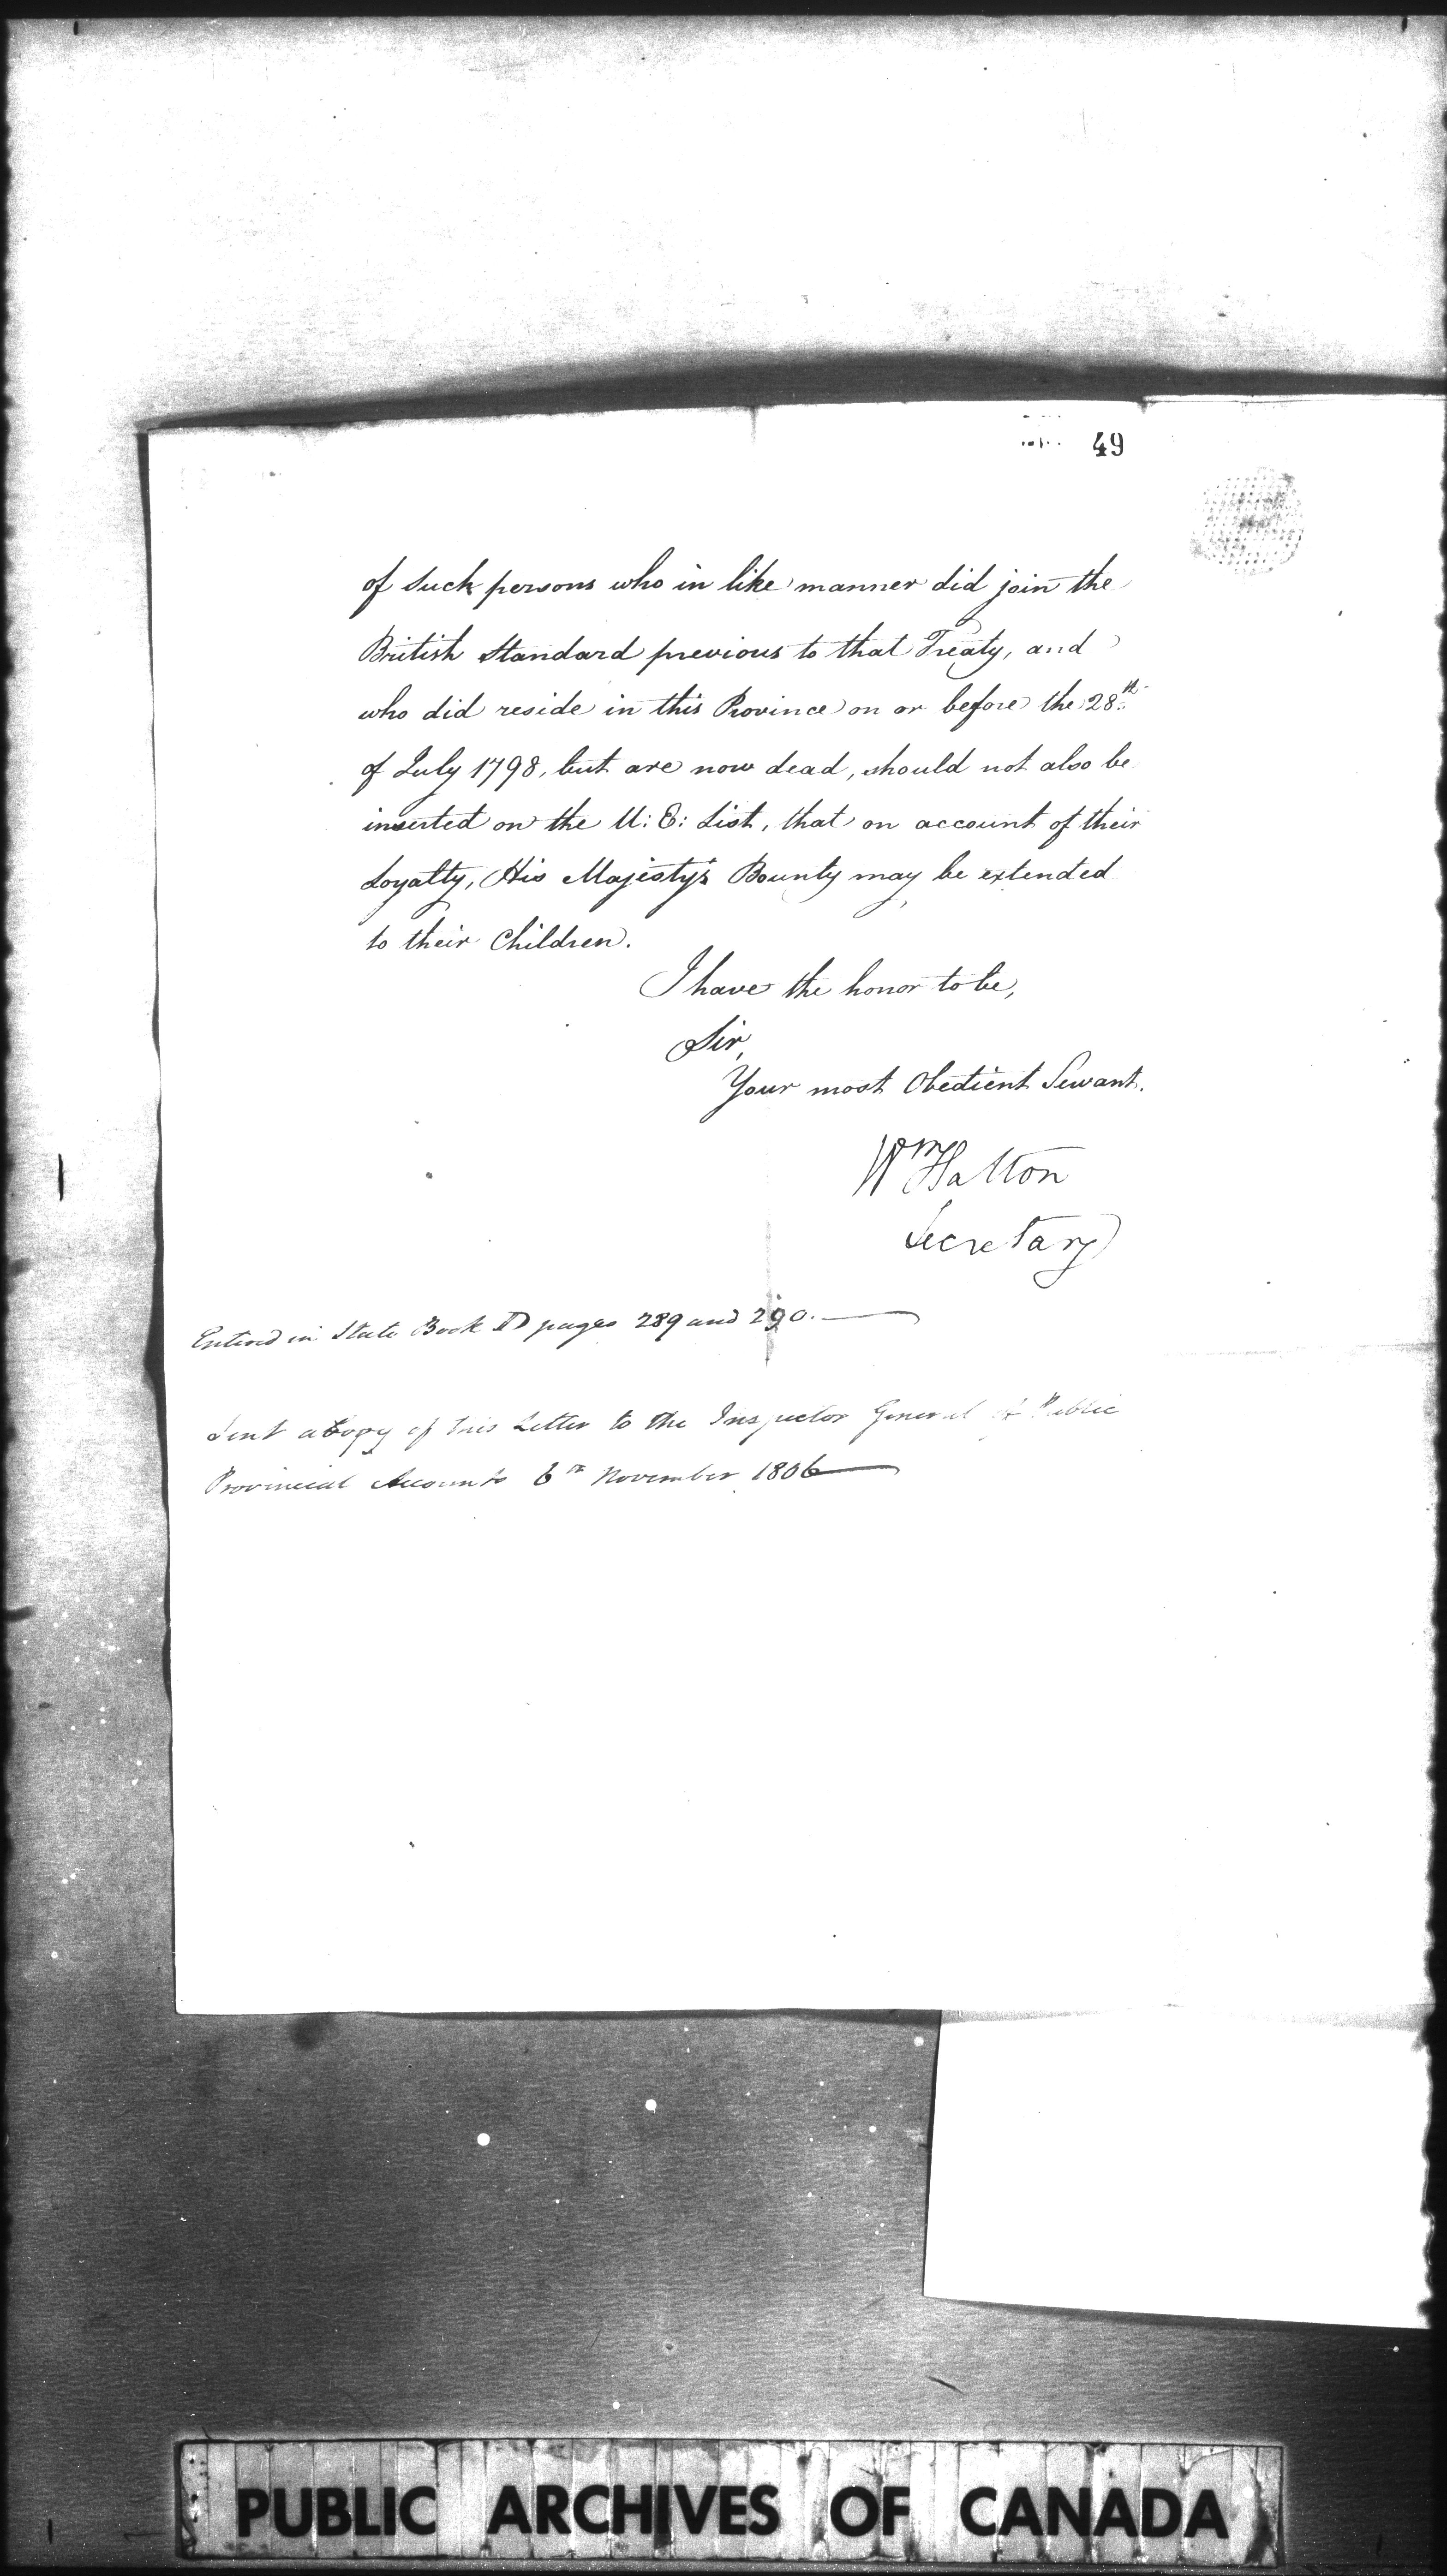 49
of such persons who in like manner did join the
British Standard previous to that Treaty, and
who did reside in this Province on or before the 28th
of July 1798, but are now dead, should not also be
inserted on the U: E: List, that on account of their
Loyalty, His Majesty's Bounty may be extended
to their Children.
I have the honor to be,
Sir,
Your most Obedient Servant.
Wm Halton
Secretary
Entered in State Book D pages 289 and 290.
Sent a Copy of this Letter to the Inspector General of Public
Provincial Accounts 6th November 1806
PUBLIC ARCHIVES OF CANADA